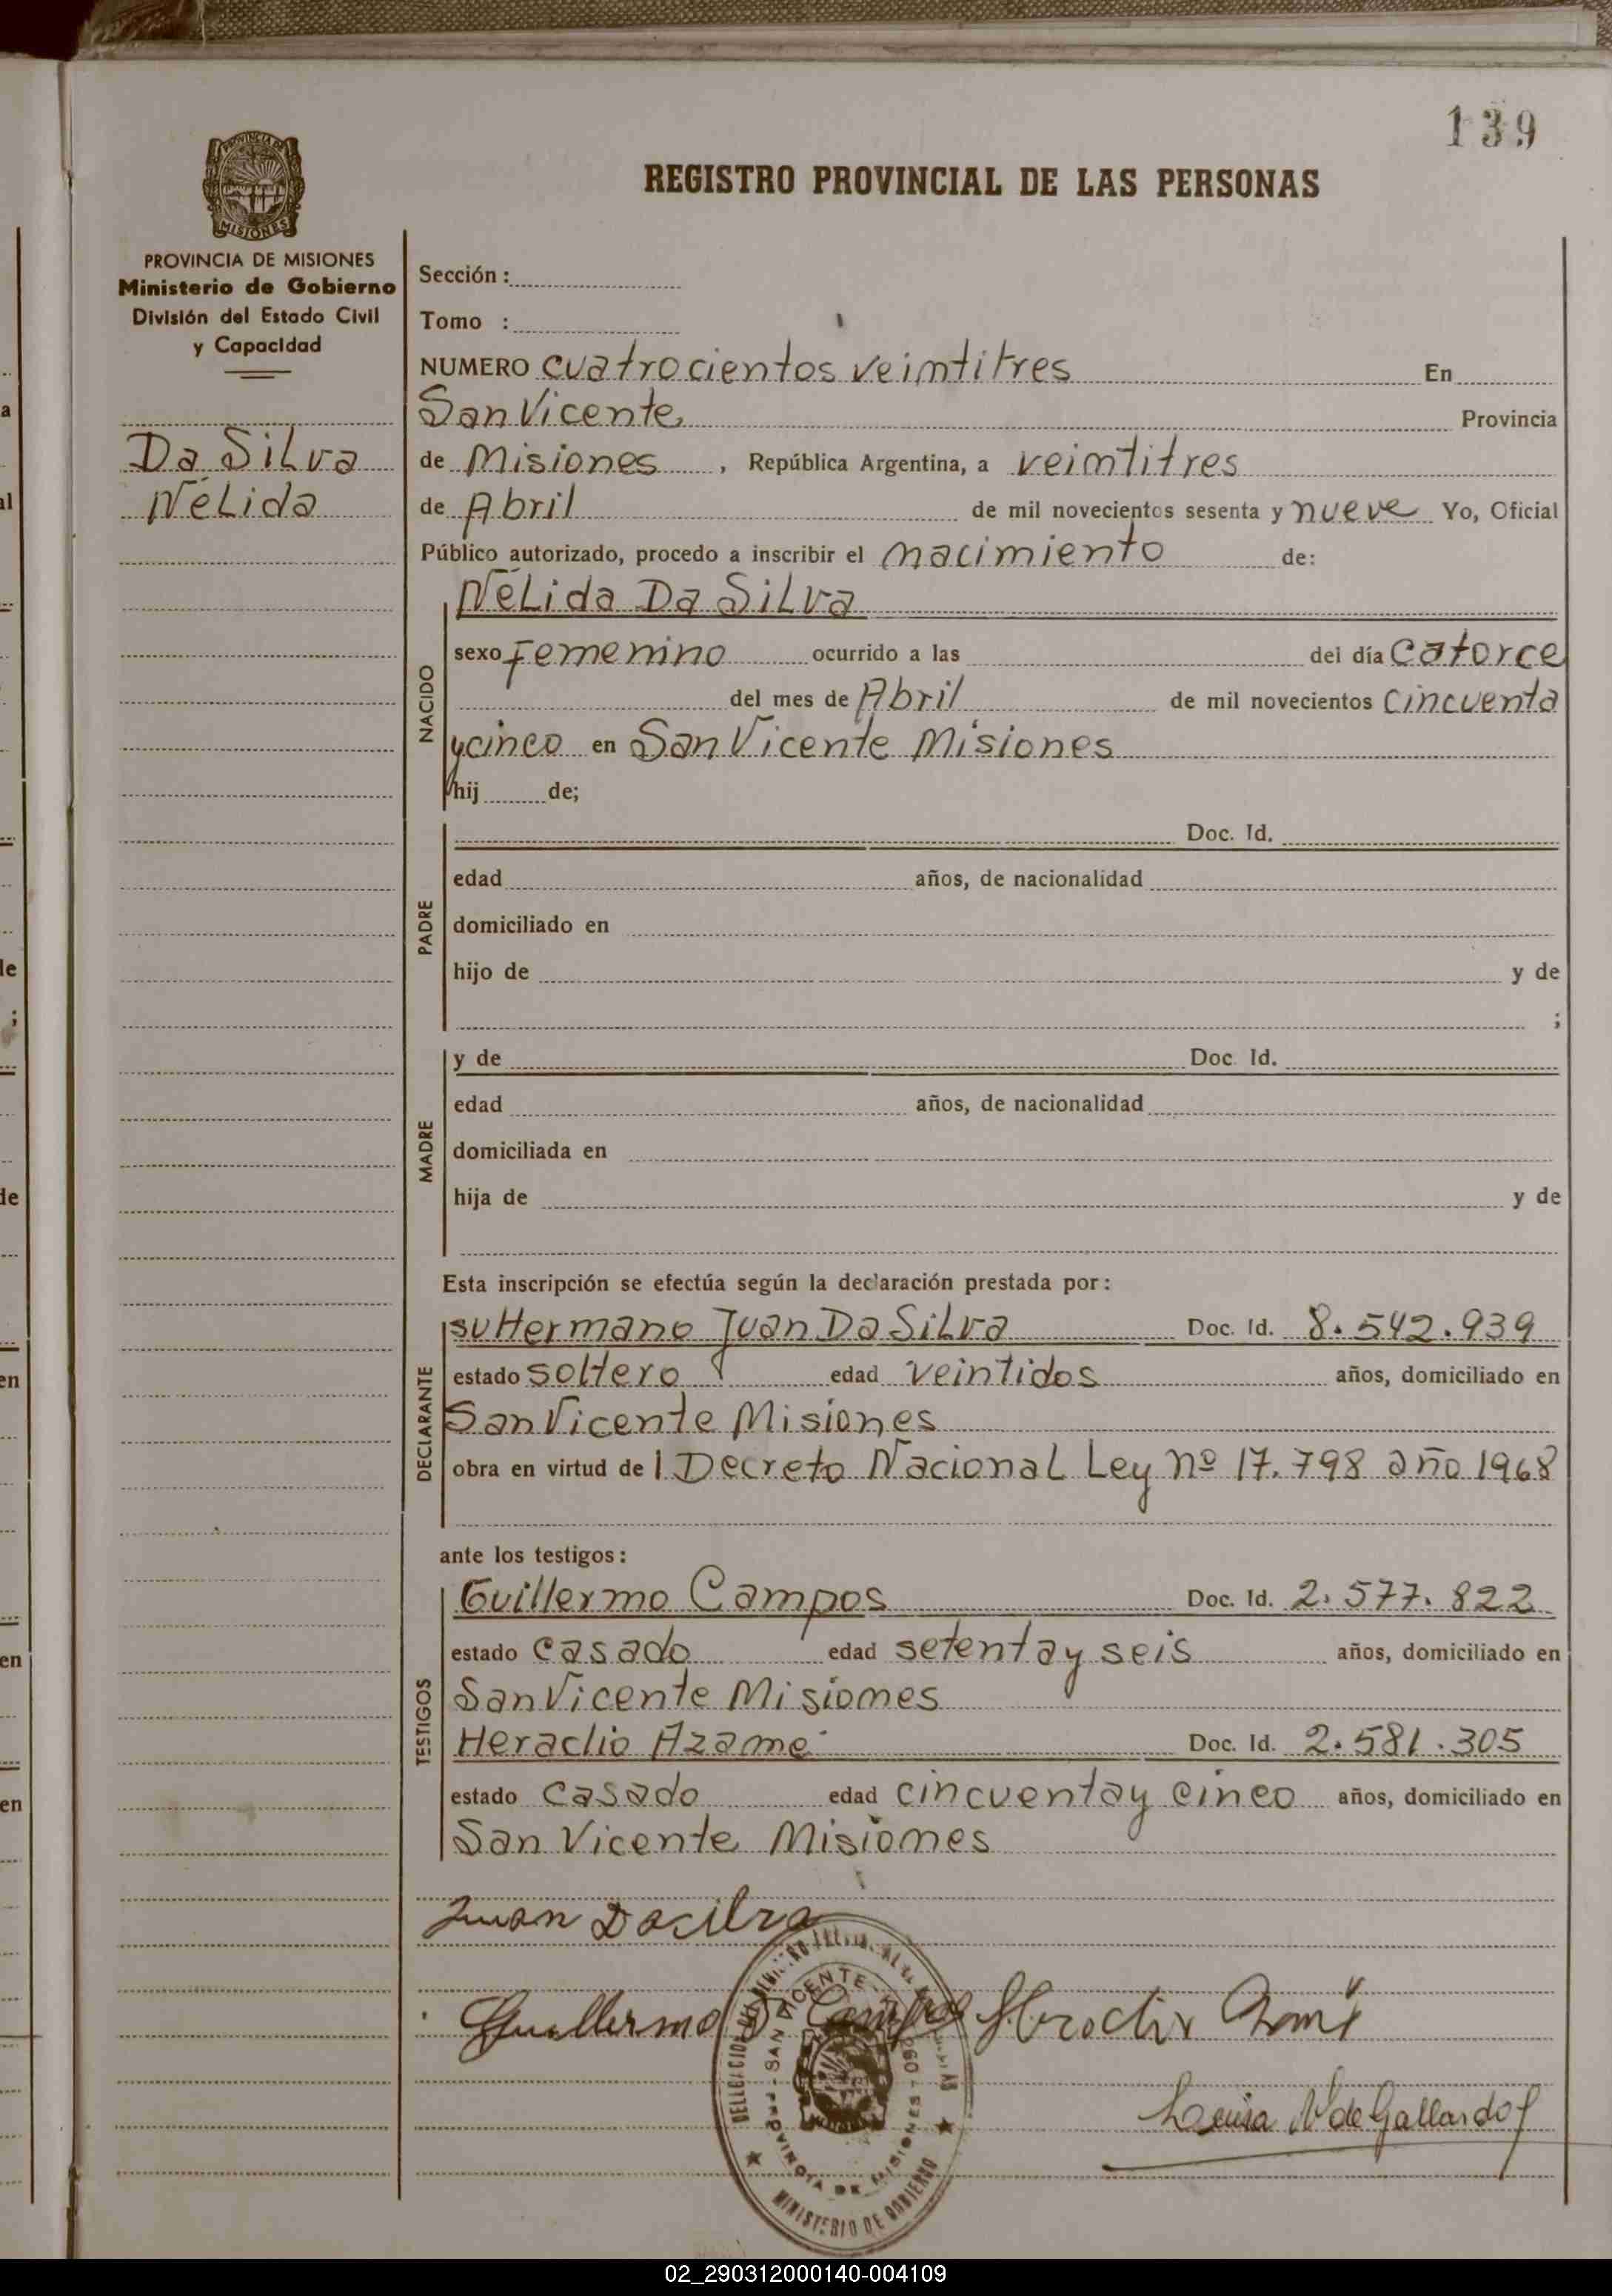 139
REGISTRO PROVINCIAL DE LAS PERSONAS
PROVINCIA DE
MISIONES
PROVINCIA DE MISIONES
Ministerio de Gobierno
División del Estado Civil
y Capacidad
Da Silva
Nélida
Sección :
Tomo :
NUMERO cuatrocientos veimtitres En
San Vicente Provincia
de Misiones , República Argentina, a veimtitres
de Abril de mil novecientos sesenta y nueve Yo, Oficial
Público autorizado, procedo a inscribir el nacimiento de:
NACIDO
Nélida Da Silva
sexo Femenino ocurrido a las del día catorce
del mes de Abril de mil novecientos cincuenta
y cinco en San Vicente Misiones
hij de;
PADRE
Doc. Id.
edad años, de nacionalidad
domiciliado en
hijo de y de
;
MADRE
y de Doc. Id.
edad años, de nacionalidad
domiciliada en
hija de y de
Esta inscripción se efectúa según la declaración prestada por :
DECLARANTE
su Hermano Juan Da Silva Doc. Id. 8.542.939
estado soltero edad veintidos años, domiciliado en
San Vicente Misiones
obra en virtud de l Decreto Nacional Ley nº 17.798 año 1968
ante los testigos :
TESTIGOS
Guillermo Campos Doc. Id. 2.577.822
estado casado edad setenta y seis años, domiciliado en
San Vicente Misiones
Heraclio Azame Doc. Id. 2.581.305
estado casado edad cincuenta y cinco años, domiciliado en
San Vicente Misiones
Juan Dasilva
Guillermo Campos
Luisa N de Gallardo
SAN VICENTE
PROVINCIA DE MISIONES
MINISTERIO DE GOBIERNO
02_290312000140-004109